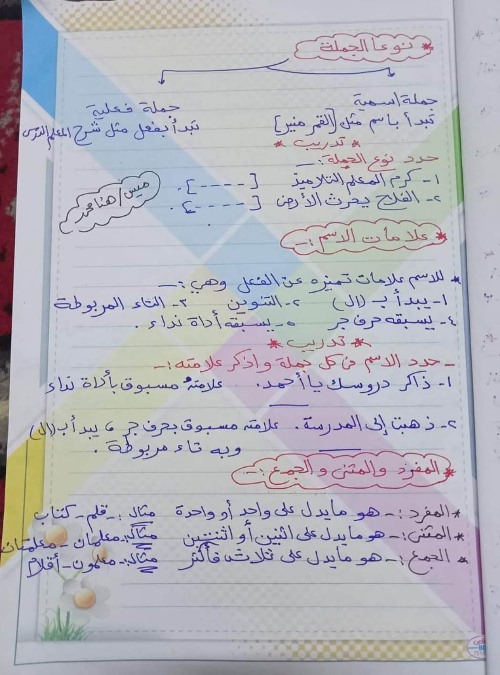 * نوعا الجملة
جملة اسمية
تبدأ باسم مثل [القمر منير]
جملة فعلية
تبدأ بفعل مثل شرح المعلم الدرس
* تدريب *
حدد نوع الجملة :-
١- كرم المعلم التلاميذ [----].
٢- الفلاح يحرث الأرض [----].
ميس/هنا محمد
* علامات الاسم :-
* للاسم علامات تميزه عن الفعل وهي :-
١- يبدأ بـ (ال) ٢- التنوين ٣- التاء المربوطة
٤- يسبقه حرف جر ٥- يسبقه أداة نداء .
* تدريب *
- حدد الاسم فى كل جملة و اذكر علامته :-
١- ذاكر دروسك يا أحمد. علامته مسبوق بأداة نداء
٢- ذهبت إلى المدرسة . علامته مسبوق بحرف جر ، يبدأ ب (ال)
وبه تاء مربوطة .
* المفرد والمثنى والجمع :-
* المفرد :- هو مايدل على واحد أو واحدة مثال :- قلم - كتاب
* المثنى :- هو مايدل على اثنين أو اثنتين مثال :- معلمان - معلمتان
* الجمع :- هو مايدل على ثلاث فأكثر مثال :- معلمون - أقلام